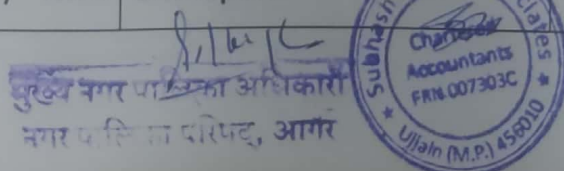 मुख्य नगर पालिका अधिकारी
नगर पालिका परिषद्, आगर
Subhash
Chartered
Accountants
FRN 007303C
Ujjain (M.P.) 456010